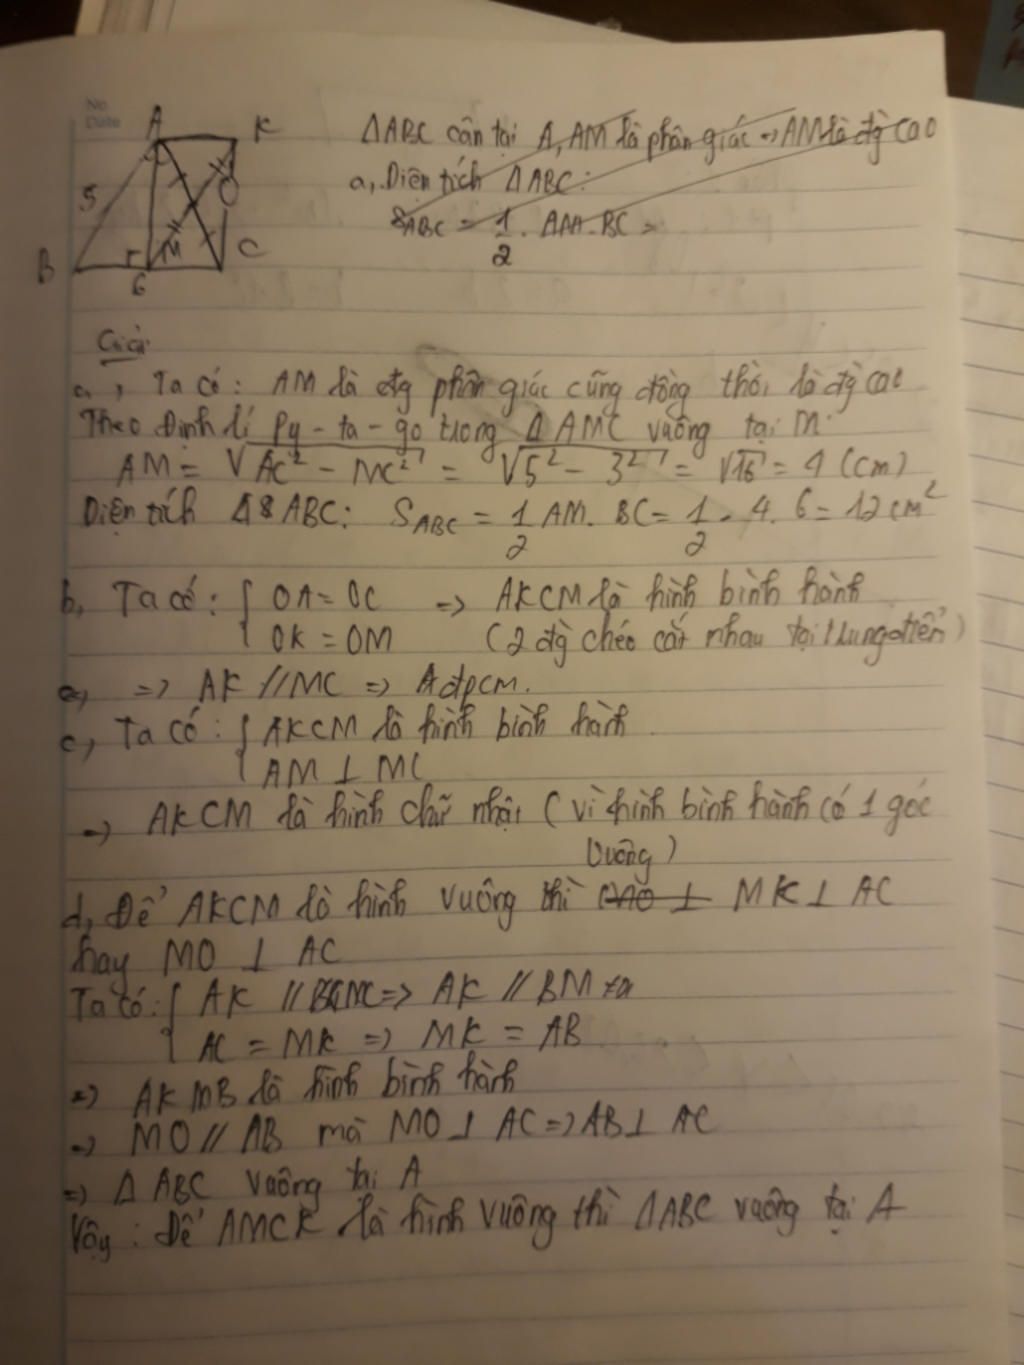 No
Date
A
K
5
O
B
M
C
6
ΔABC cân tại A, AM là phân giác => AM là đg cao
a, Diện tích ΔABC:
S_ABC = 1/2 . AM . BC =
Giải
a, Ta có: AM là đg phân giác cũng đồng thời là đg cao
Theo định lí Py-ta-go trong ΔAMC vuông tại M.
AM = √AC² - MC² = √5² - 3² = √16 = 4 (cm)
Diện tích ΔABC: S_ABC = 1/2 AM. BC = 1/2 . 4. 6 = 12 cm²
b, Ta có: { OA = OC => AKCM là hình bình hành
OK = OM (2 đg chéo cắt nhau tại trung điểm)
=> AK // MC => đpcm.
c, Ta có: { AKCM là hình bình hành
AM ⊥ MC
=> AKCM là hình chữ nhật (vì hình bình hành có 1 góc
vuông)
d, Để AKCM là hình vuông thì MK ⊥ AC
hay MO ⊥ AC
Ta có: { AK // MC => AK // BM
AC = MK => MK = AB
=> AKMB là hình bình hành
=> MO // AB mà MO ⊥ AC => AB ⊥ AC
=> Δ ABC vuông tại A
Vậy: Để AMCK là hình vuông thì ΔABC vuông tại A